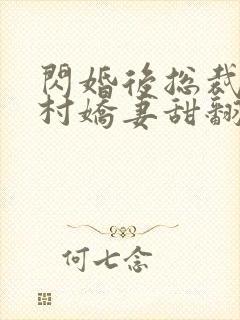 閃婚後總裁
村嬌妻甜翻
何七念